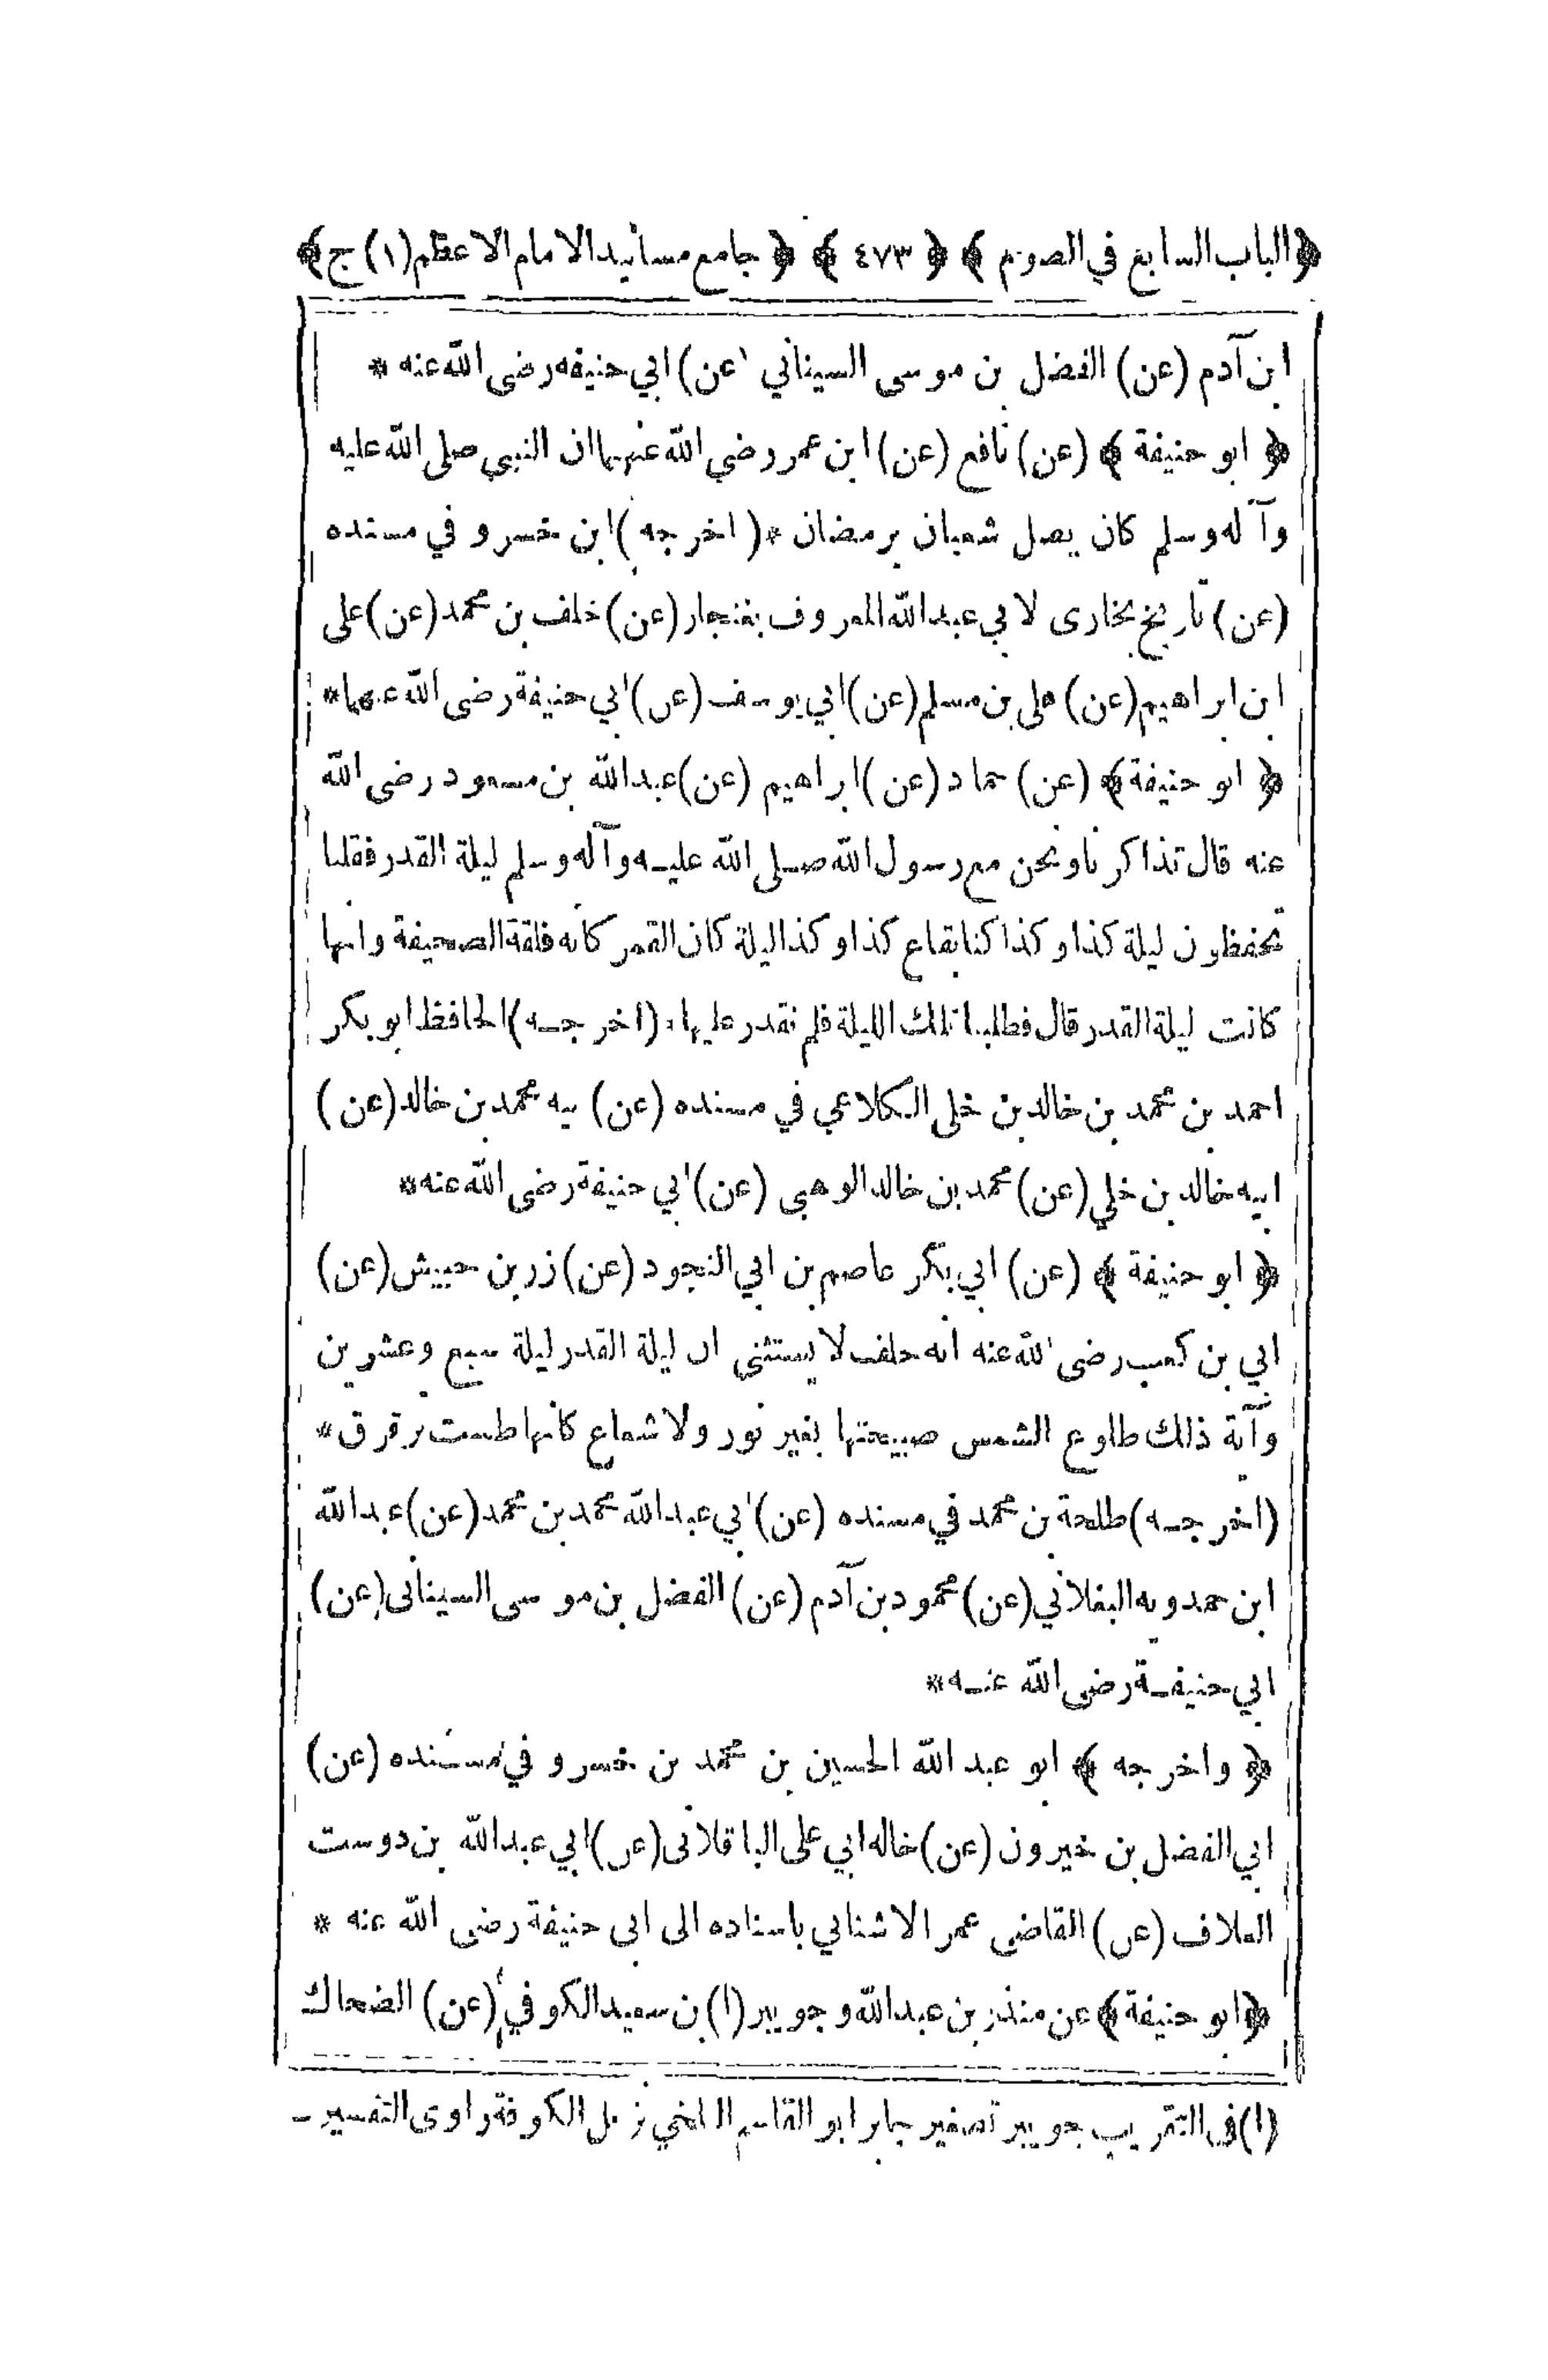 ﴿الباب السابع في الصوم﴾ ﴿٤٧٣﴾ ﴿جامع مسانيد الامام الاعظم (١) ج﴾
ابن آدم (عن) الفضل بن موسى السيناني (عن) ابي حنيفه رضى الله عنه *
﴿ ابو حنيفة ﴾ (عن) نافع (عن) ابن عمر رضي الله عنهما ان النبي صلى الله عليه
وآله وسلم كان يصل شعبان برمضان * (اخرجه) ابن خسرو في مسنده
(عن) تاريخ بخارى لابي عبد الله المعروف بغنجار (عن) خلف بن محمد (عن) على
ابن ابراهيم (عن) على بن مسلم (عن) ابي يوسف (عن) ابي حنيفة رضى الله عنهما *
﴿ ابو حنيفة ﴾ (عن) حماد (عن) ابراهيم (عن) عبد الله بن مسعود رضى الله
عنه قال تذاكرنا ونحن مع رسول الله صلى الله عليه وآله وسلم ليلة القدر فقلنا
تحفظون ليلة كذا وكذا كنا بقاع كذا وكذا ليلة كان القمر كانه فلقة الصحيفة وانها
كانت ليلة القدر قال فطلبنا تلك الليلة فلم نقدر عليها * (اخرجه) الحافظ ابو بكر
احمد بن محمد بن خالد بن خلى الكلاعي في مسنده (عن) بيه محمد بن خالد (عن)
ابيه خالد بن خلي (عن) محمد بن خالد الوهبى (عن) ابي حنيفة رضى الله عنه *
﴿ ابو حنيفة ﴾ (عن) ابي بكر عاصم بن ابي النجود (عن) زر بن حبيش (عن)
ابي بن كعب رضى الله عنه انه حلف لا يستثنى ان ليلة القدر ليلة سبع وعشرين
وآية ذلك طلوع الشمس صبيحتها بغير نور ولا شعاع كانها طست ترقرق *
(اخرجه) طلحة بن محمد في مسنده (عن) ابي عبد الله محمد بن محمد (عن) عبد الله
ابن حمدويه البغلاني (عن) محمود بن آدم (عن) الفضل بن موسى السينانى (عن)
ابي حنيفة رضى الله عنه *
﴿ واخرجه ﴾ ابو عبد الله الحسين بن محمد بن خسرو في مسنده (عن)
ابي الفضل بن خيرون (عن) خاله ابي على الباقلانى (عن) ابي عبد الله بن دوست
العلاف (عن) القاضى عمر الاشناني باسناده الى ابى حنيفة رضى الله عنه *
﴿ابو حنيفة﴾ عن منذر بن عبد الله وجويبر (١) بن سعيد الكوفي (عن) الضحاك
(١) فى التقريب جويبر تصغير جابر ابو القاسم البلخي نزيل الكوفة راوى التفسير -